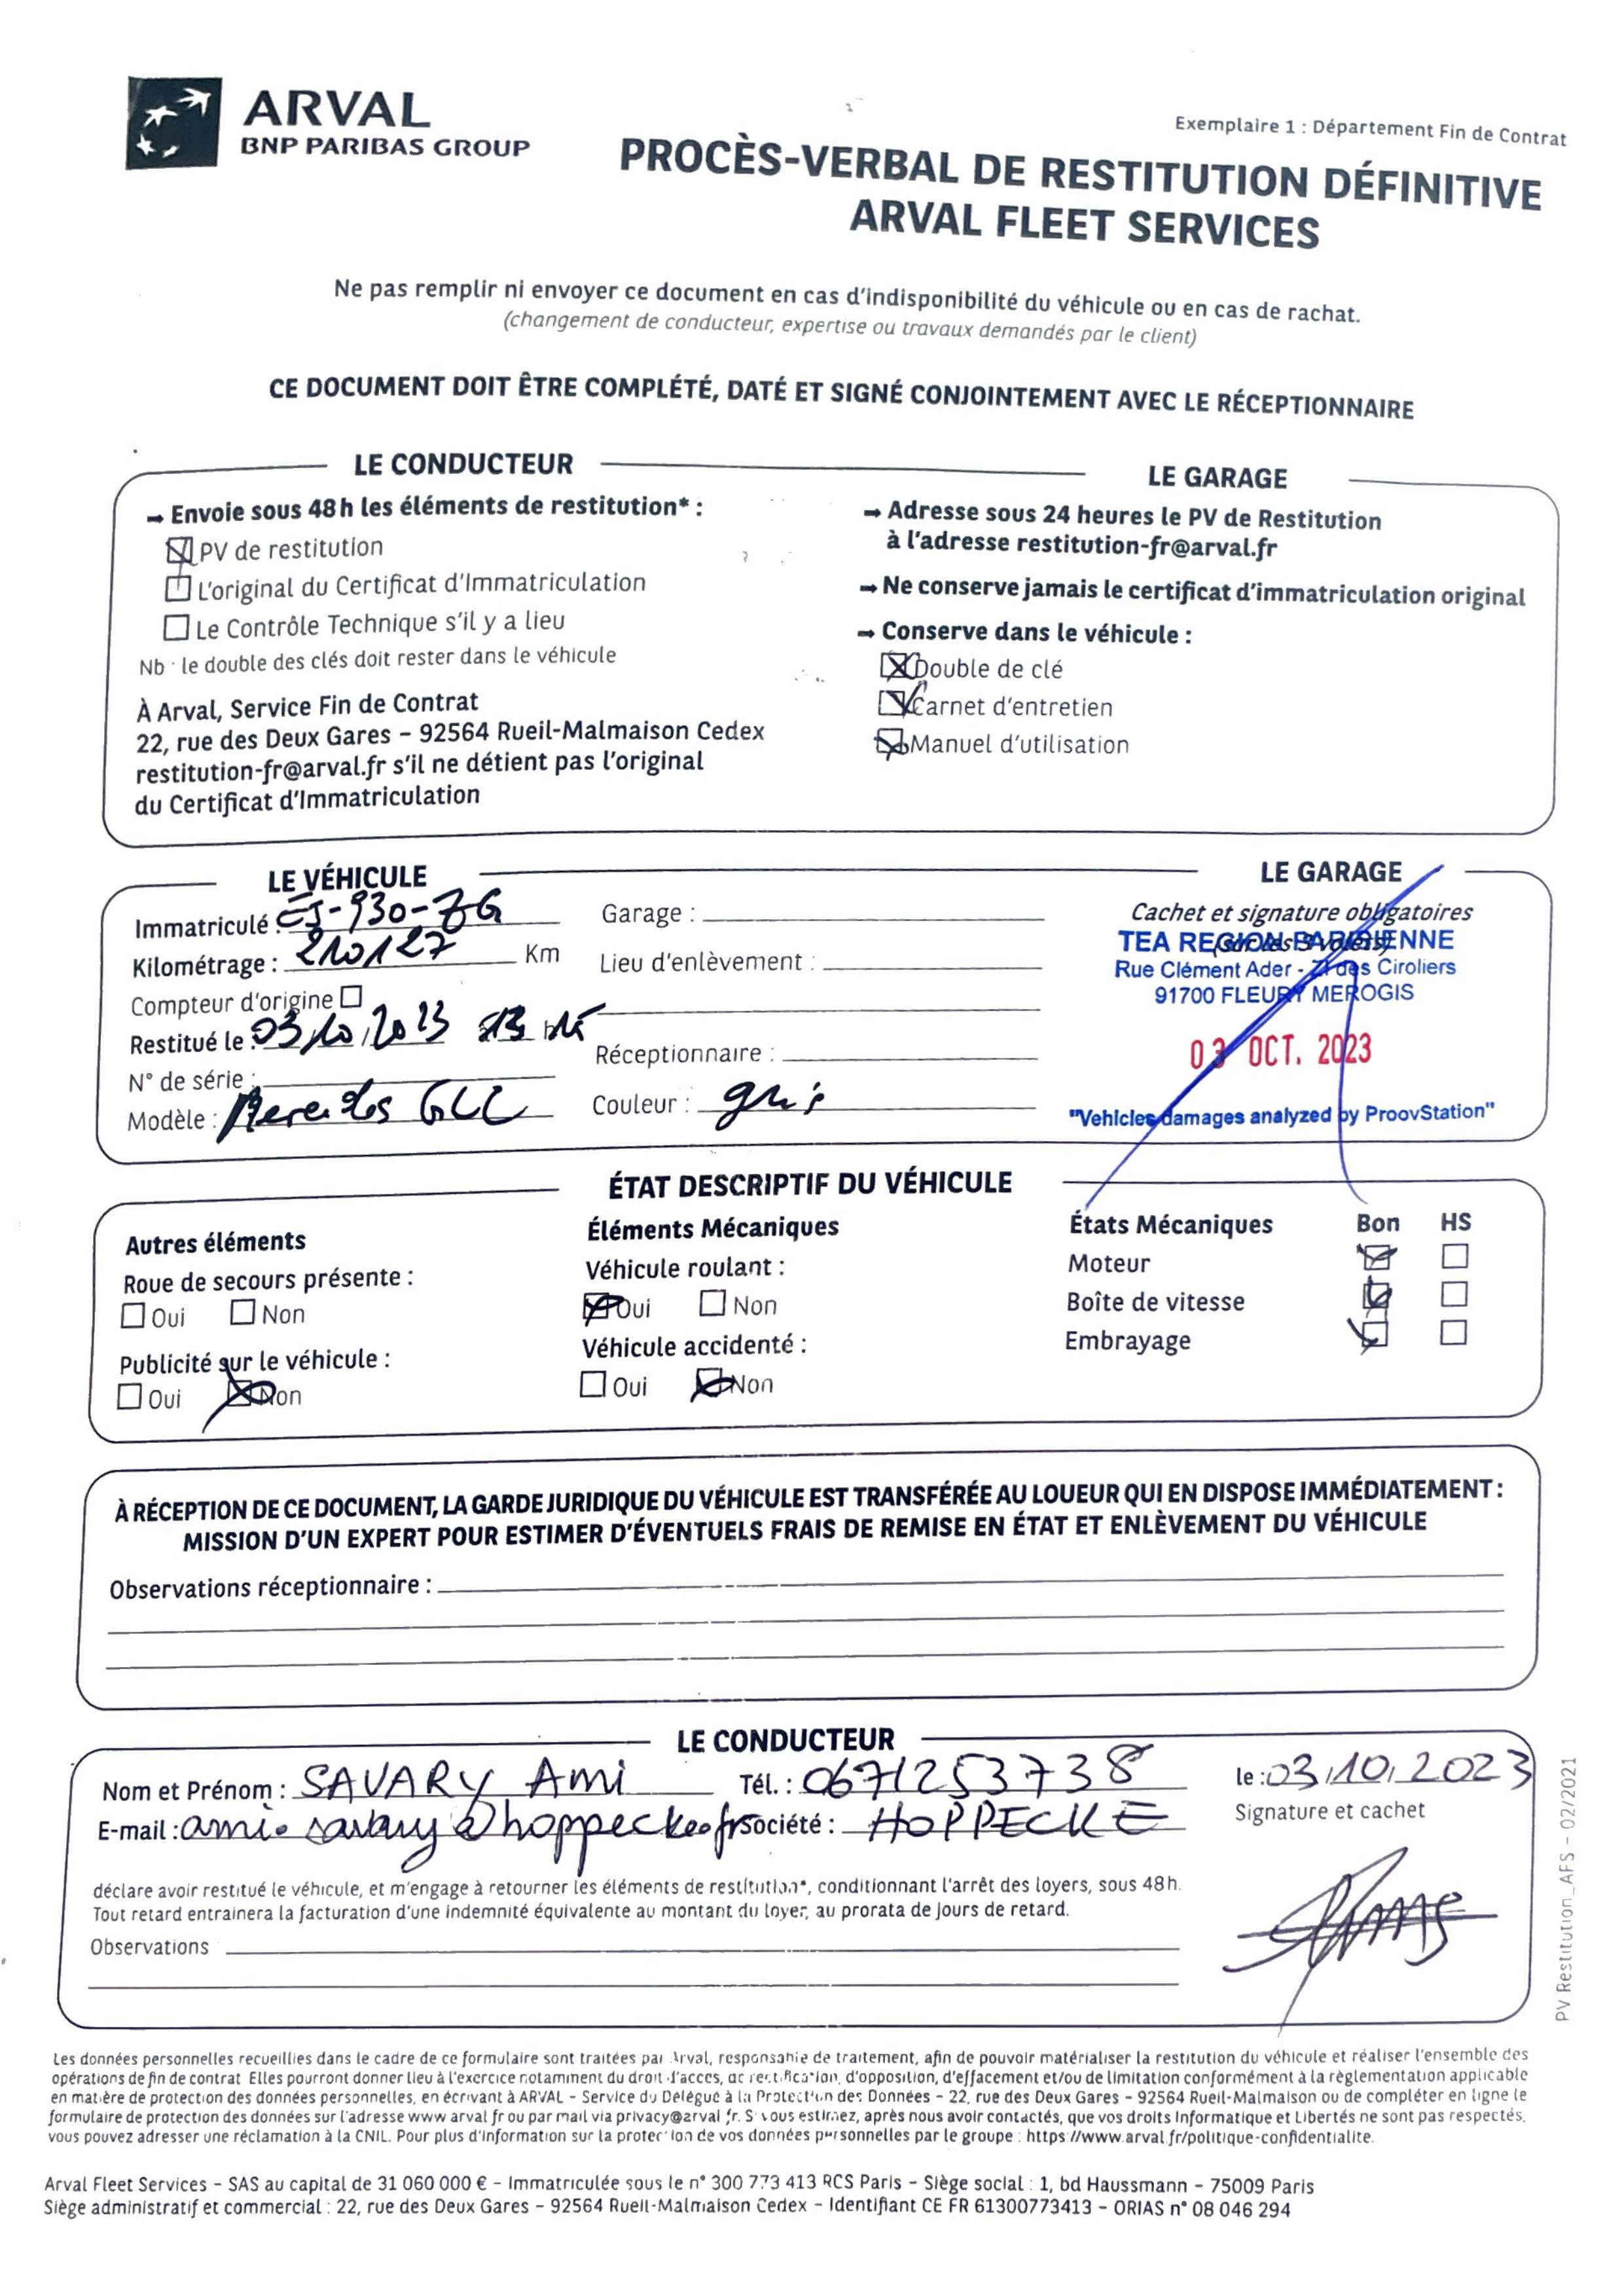 ARVAL
BNP PARIBAS GROUP
Exemplaire 1 : Département Fin de Contrat
PROCÈS-VERBAL DE RESTITUTION DÉFINITIVE
ARVAL FLEET SERVICES
Ne pas remplir ni envoyer ce document en cas d'indisponibilité du véhicule ou en cas de rachat.
(changement de conducteur, expertise ou travaux demandés par le client)
CE DOCUMENT DOIT ÊTRE COMPLÉTÉ, DATÉ ET SIGNÉ CONJOINTEMENT AVEC LE RÉCEPTIONNAIRE
LE CONDUCTEUR
→ Envoie sous 48h les éléments de restitution* :
PV de restitution
L'original du Certificat d'Immatriculation
Le Contrôle Technique s'il y a lieu
Nb : le double des clés doit rester dans le véhicule
À Arval, Service Fin de Contrat
22, rue des Deux Gares – 92564 Rueil-Malmaison Cedex
restitution-fr@arval.fr s'il ne détient pas l'original
du Certificat d'Immatriculation
LE GARAGE
→ Adresse sous 24 heures le PV de Restitution
à l'adresse restitution-fr@arval.fr
→ Ne conserve jamais le certificat d'immatriculation original
→ Conserve dans le véhicule :
Double de clé
Carnet d'entretien
Manuel d'utilisation
LE VÉHICULE
Immatriculé : EJ-930-ZG
Kilométrage : 210127 Km
Compteur d'origine
Restitué le : 03/10/2023 à 13 h 15
N° de série :
Modèle : Mercedes GLC
Garage :
Lieu d'enlèvement :
Réceptionnaire :
Couleur : gris
LE GARAGE
Cachet et signature obligatoires
(sur les 3 volets)
TEA REGION PARISIENNE
Rue Clément Ader - ZI des Ciroliers
91700 FLEURY MEROGIS
03 OCT. 2023
"Vehicles damages analyzed by ProovStation"
ÉTAT DESCRIPTIF DU VÉHICULE
Autres éléments
Roue de secours présente :
Oui Non
Publicité sur le véhicule :
Oui Non
Éléments Mécaniques
Véhicule roulant :
Oui Non
Véhicule accidenté :
Oui Non
États Mécaniques Bon HS
Moteur
Boîte de vitesse
Embrayage
À RÉCEPTION DE CE DOCUMENT, LA GARDE JURIDIQUE DU VÉHICULE EST TRANSFÉRÉE AU LOUEUR QUI EN DISPOSE IMMÉDIATEMENT :
MISSION D'UN EXPERT POUR ESTIMER D'ÉVENTUELS FRAIS DE REMISE EN ÉTAT ET ENLÈVEMENT DU VÉHICULE
Observations réceptionnaire :
LE CONDUCTEUR
Nom et Prénom : SAVARY Ami Tél. : 0671253738 le : 03/10/2023
E-mail : ami.savary@hoppecke.fr Société : HOPPECKE Signature et cachet
déclare avoir restitué le véhicule, et m'engage à retourner les éléments de restitution*, conditionnant l'arrêt des loyers, sous 48h.
Tout retard entrainera la facturation d'une indemnité équivalente au montant du loyer, au prorata de jours de retard.
Observations
PV Restitution_AFS – 02/2021
Les données personnelles recueillies dans le cadre de ce formulaire sont traitées par Arval, responsable de traitement, afin de pouvoir matérialiser la restitution du véhicule et réaliser l'ensemble des
opérations de fin de contrat Elles pourront donner lieu à l'exercice notamment du droit d'acces, de rectification, d'opposition, d'effacement et/ou de limitation conformément à la règlementation applicable
en matière de protection des données personnelles, en écrivant à ARVAL – Service du Délégué à la Protection des Données – 22, rue des Deux Gares – 92564 Rueil-Malmaison ou de compléter en ligne le
formulaire de protection des données sur l'adresse www arval fr ou par mail via privacy@arval fr. Si vous estimez, après nous avoir contactés, que vos droits Informatique et Libertés ne sont pas respectés,
vous pouvez adresser une réclamation à la CNIL. Pour plus d'information sur la protection de vos données personnelles par le groupe : https://www.arval.fr/politique-confidentialite.
Arval Fleet Services – SAS au capital de 31 060 000 € – Immatriculée sous le n° 300 773 413 RCS Paris – Siège social : 1, bd Haussmann – 75009 Paris
Siège administratif et commercial : 22, rue des Deux Gares – 92564 Rueil-Malmaison Cedex – Identifiant CE FR 61300773413 – ORIAS n° 08 046 294